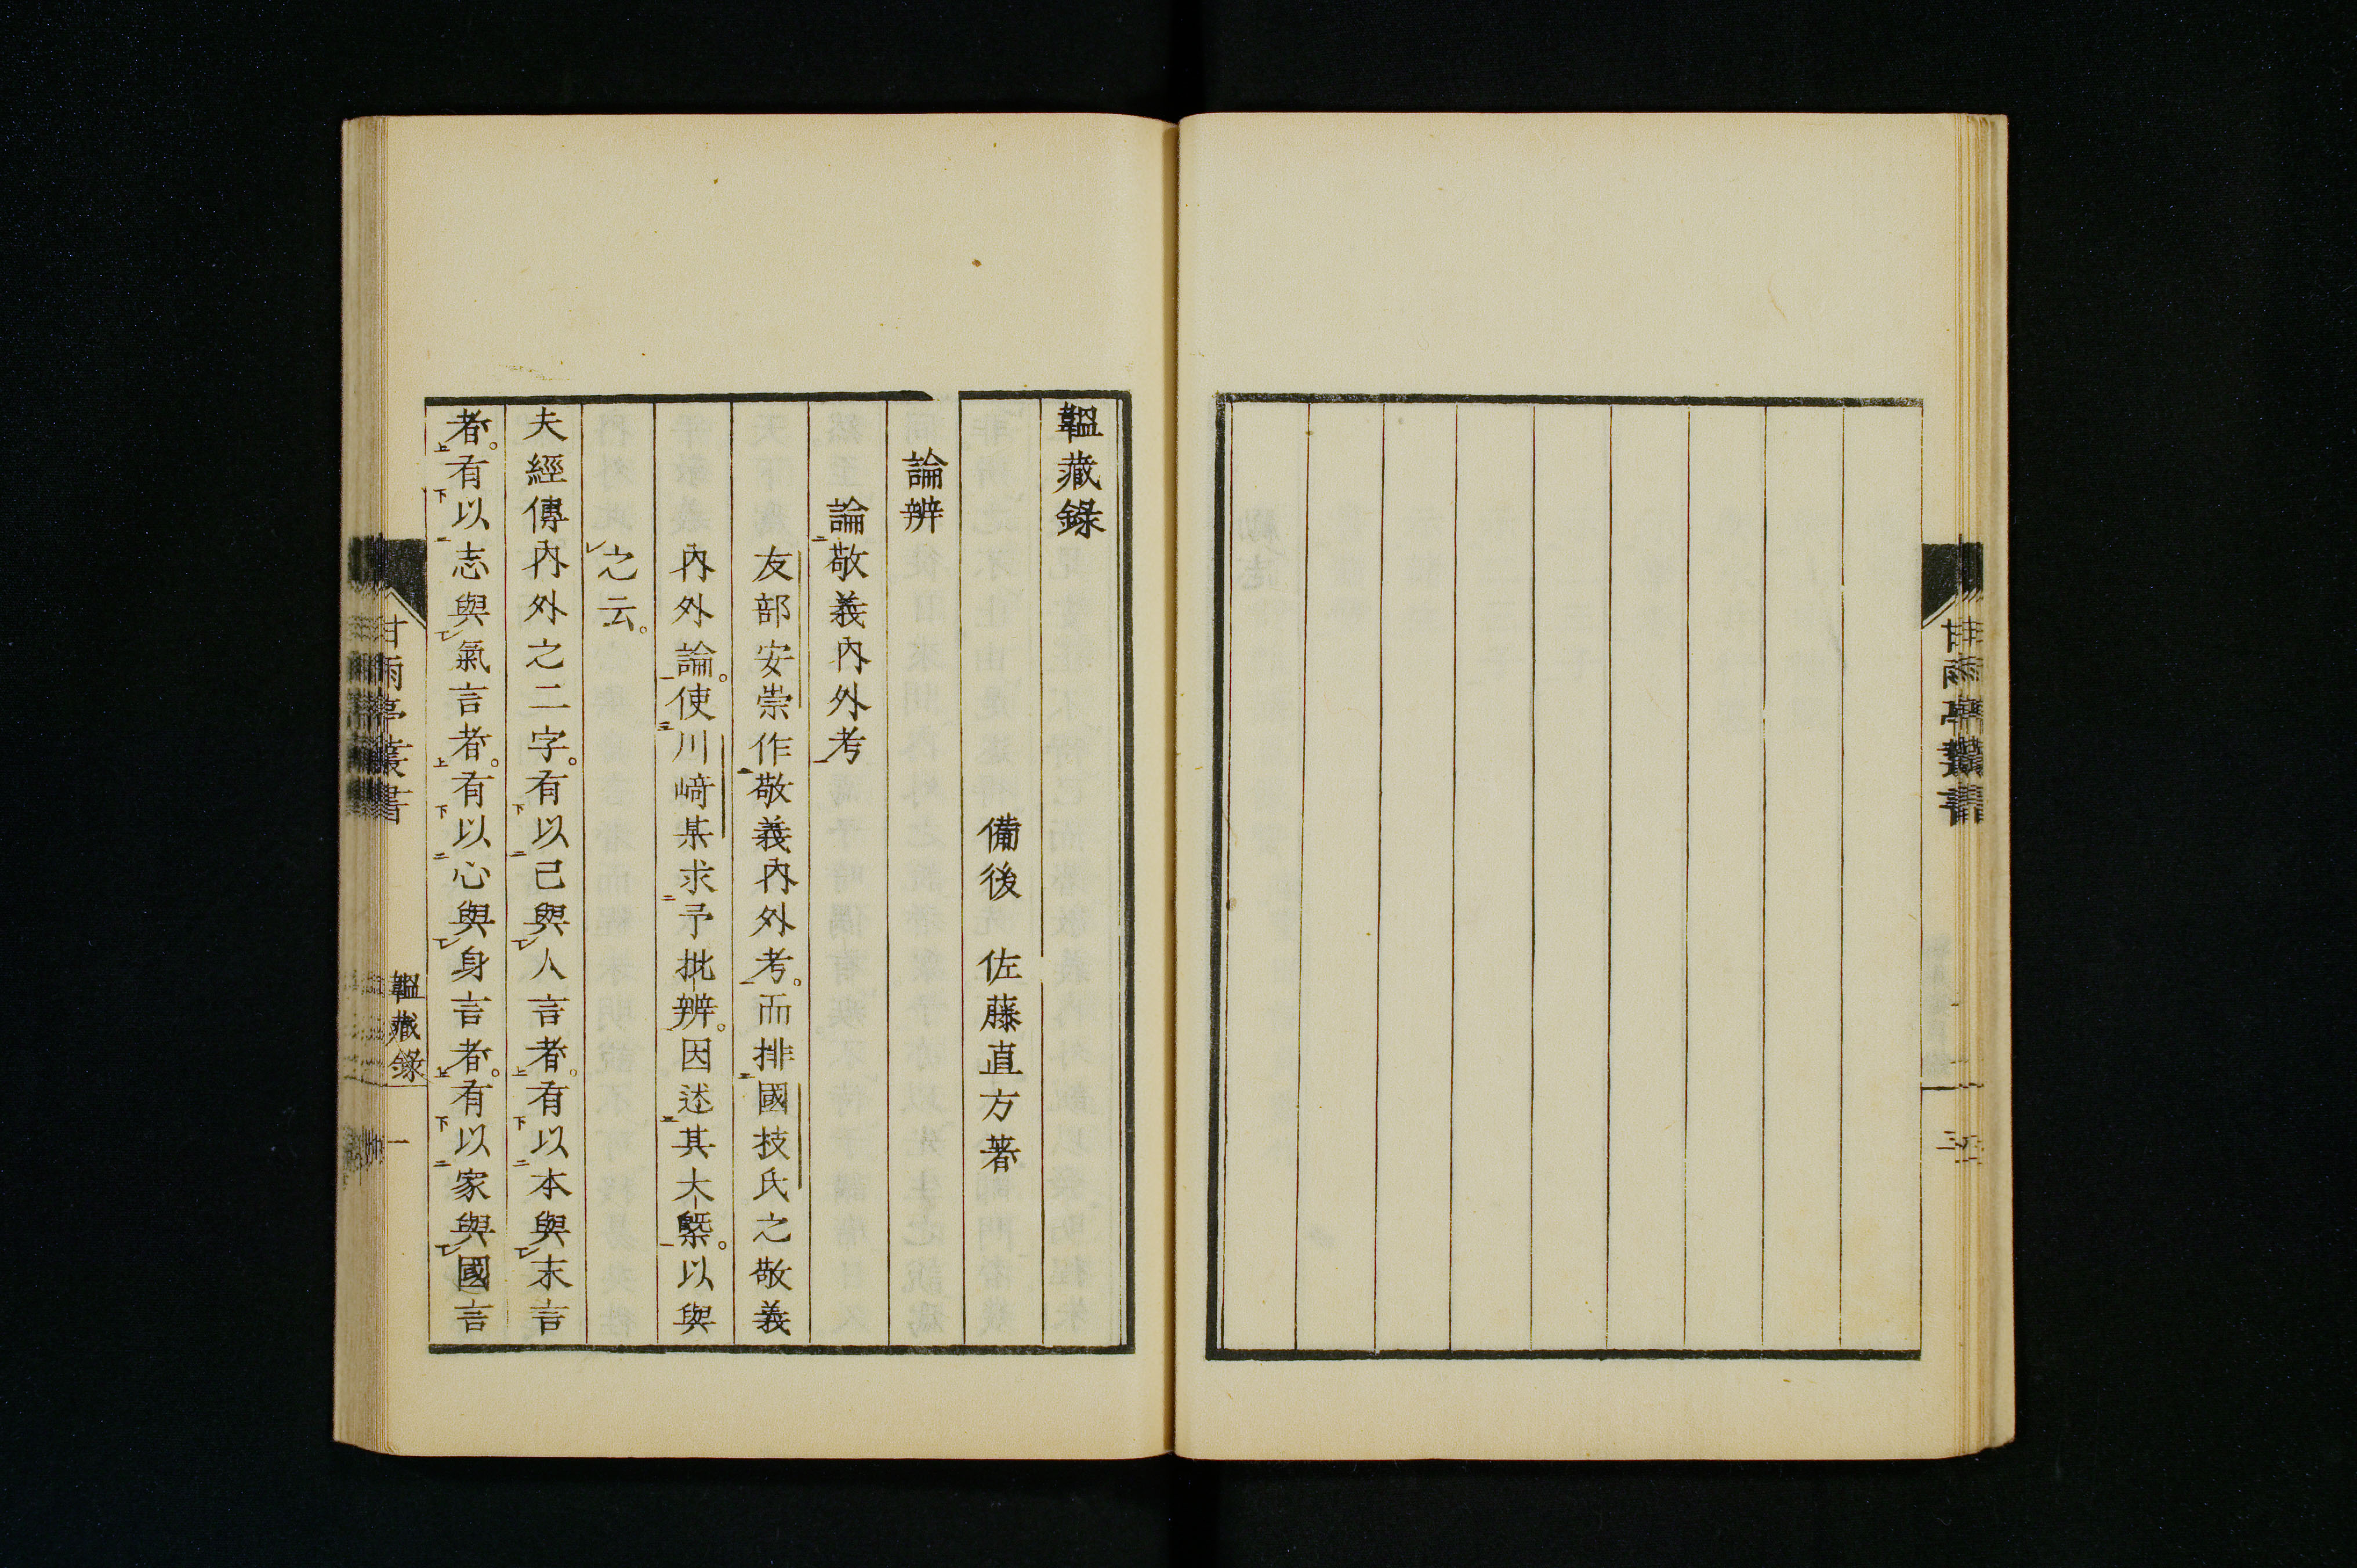 韞藏錄
備後 佐藤直方著
論辨
論敬義內外考
友部安崇作敬義內外考。而排國技氏之敬義
內外論。使川﨑某求予批辨。因述其大槩。以與
之云。
夫經傳內外之二字。有以己與人言者。有以本與末言
者。有以志與氣言者。有以心與身言者。有以家與國言
甘雨亭叢書
韞藏錄
一
甘雨亭叢書